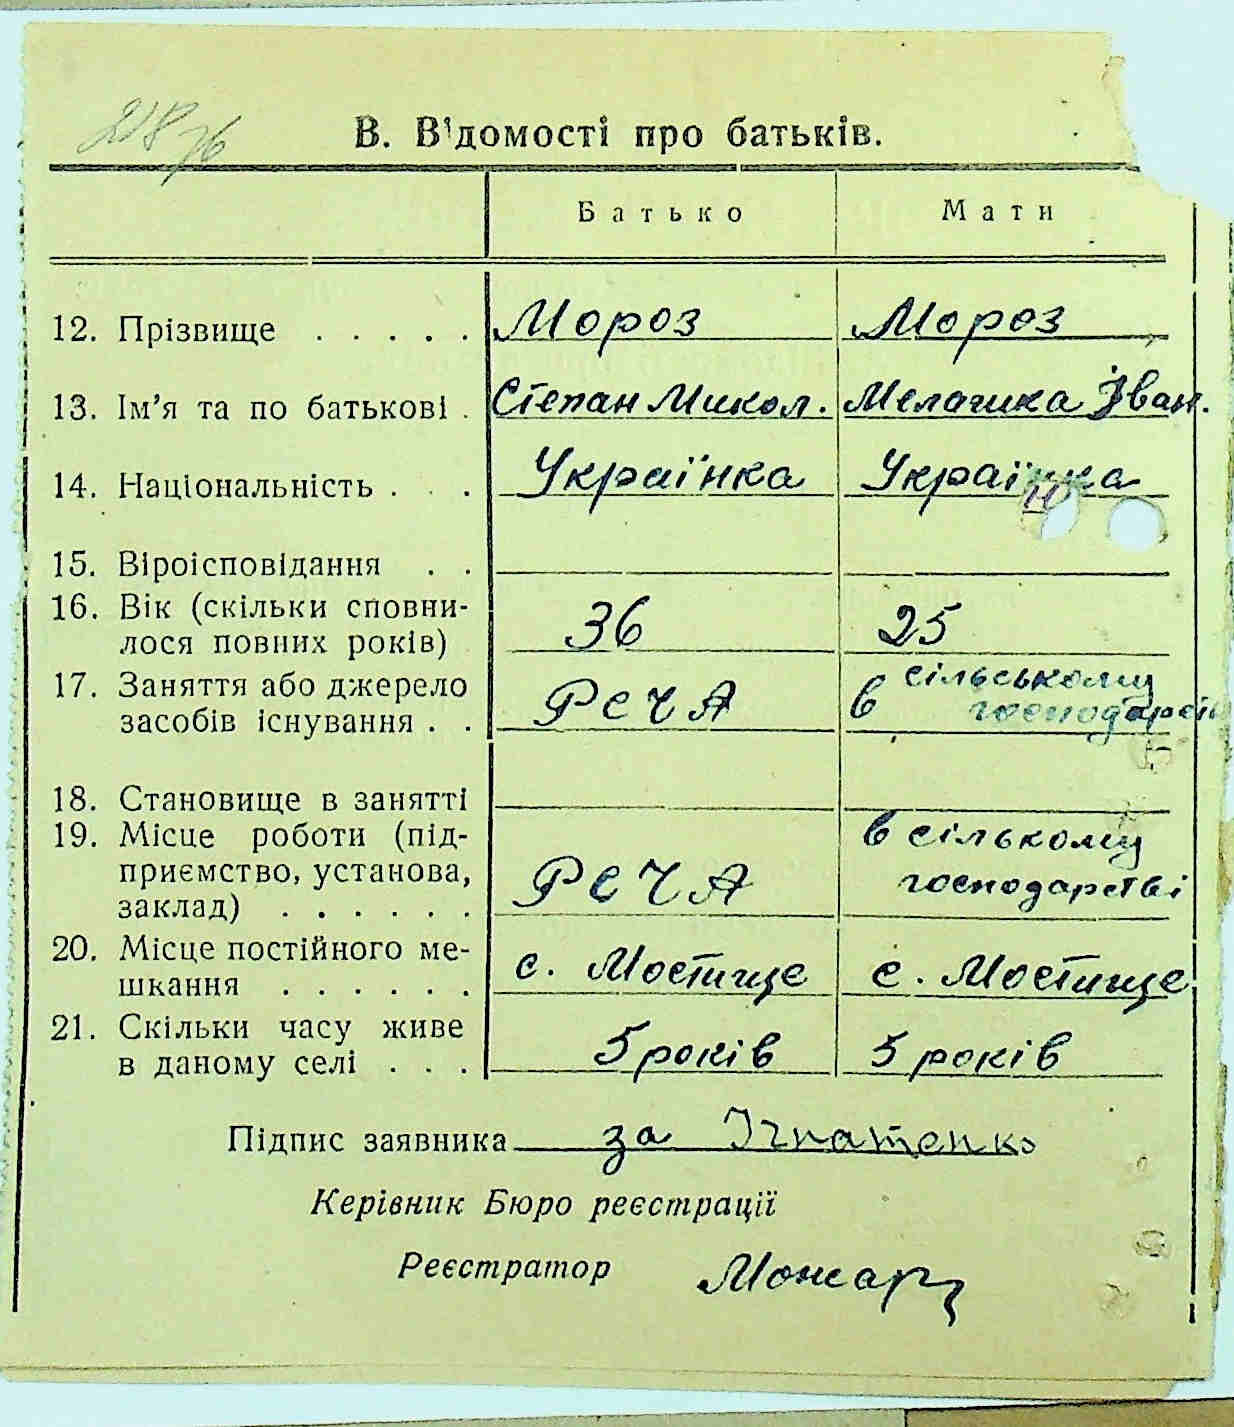 В. Відомості про батьків.
Батько Мати
12. Прізвище . . . . . Мороз Мороз
13. Ім'я та по батькові . Степан Микол. Мелашка Іван.
14. Національність . . . Українка Українка
15. Віроісповідання . .
16. Вік (скільки сповни-
лося повних років) 36 25
17. Заняття або джерело
засобів існування . . РСЧА в сільському
господарстві
18. Становище в занятті
19. Місце роботи (під-
приємство, установа,
заклад) . . . . . . РСЧА в сількому
господарстві
20. Місце постійного ме-
шкання . . . . . . с. Мостище с. Мостище
21. Скільки часу живе
в даному селі . . . 5 років 5 років
Підпис заявника за Ігнатенко
Керівник Бюро реєстрації
Реєстратор